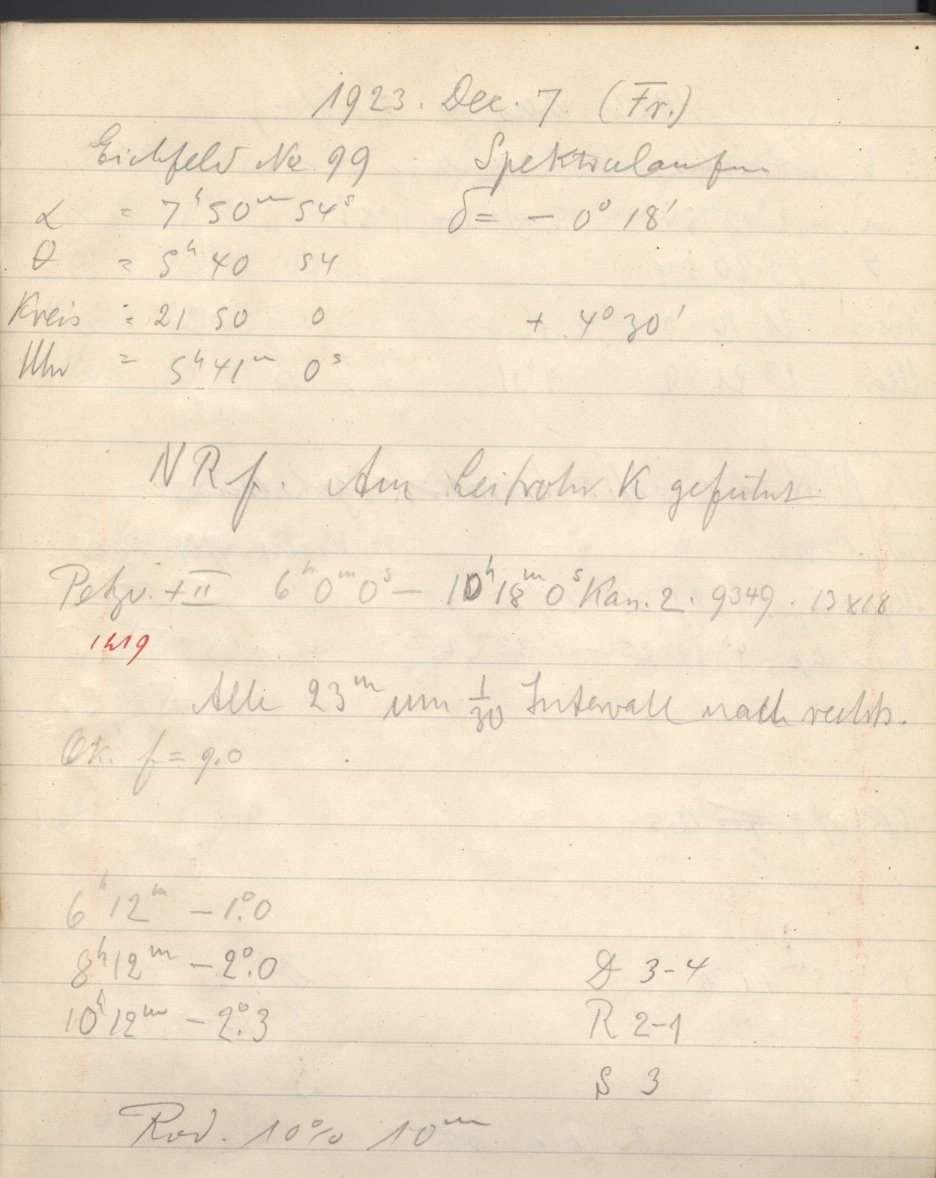 1923. Dec. 7 (Fr.)
Eichfeld No. 99 Spektralaufn.
α = 7ʰ 50ᵐ 54ˢ δ = − 0° 18'
θ = 5ʰ 40 54
Kreis = 21 50 0 + 4° 30'
Uhr = 5ʰ 41ᵐ 0ˢ
NRf. Am Leitrohr K geführt
Petzv. + II 6ʰ 0ᵐ 0ˢ − 10ʰ 18ᵐ 0ˢ Kan. 2. 9349. 13x18
1219
Alle 23ᵐ um 1/30 Intervall nach rechts.
Ok. f = 9.0
6ʰ 12ᵐ − 1°.0
8ʰ 12ᵐ − 2°.0 D 3-4
10ʰ 12ᵐ − 2°.3 R 2-1
S 3
Rod. 10% 10ᵐ